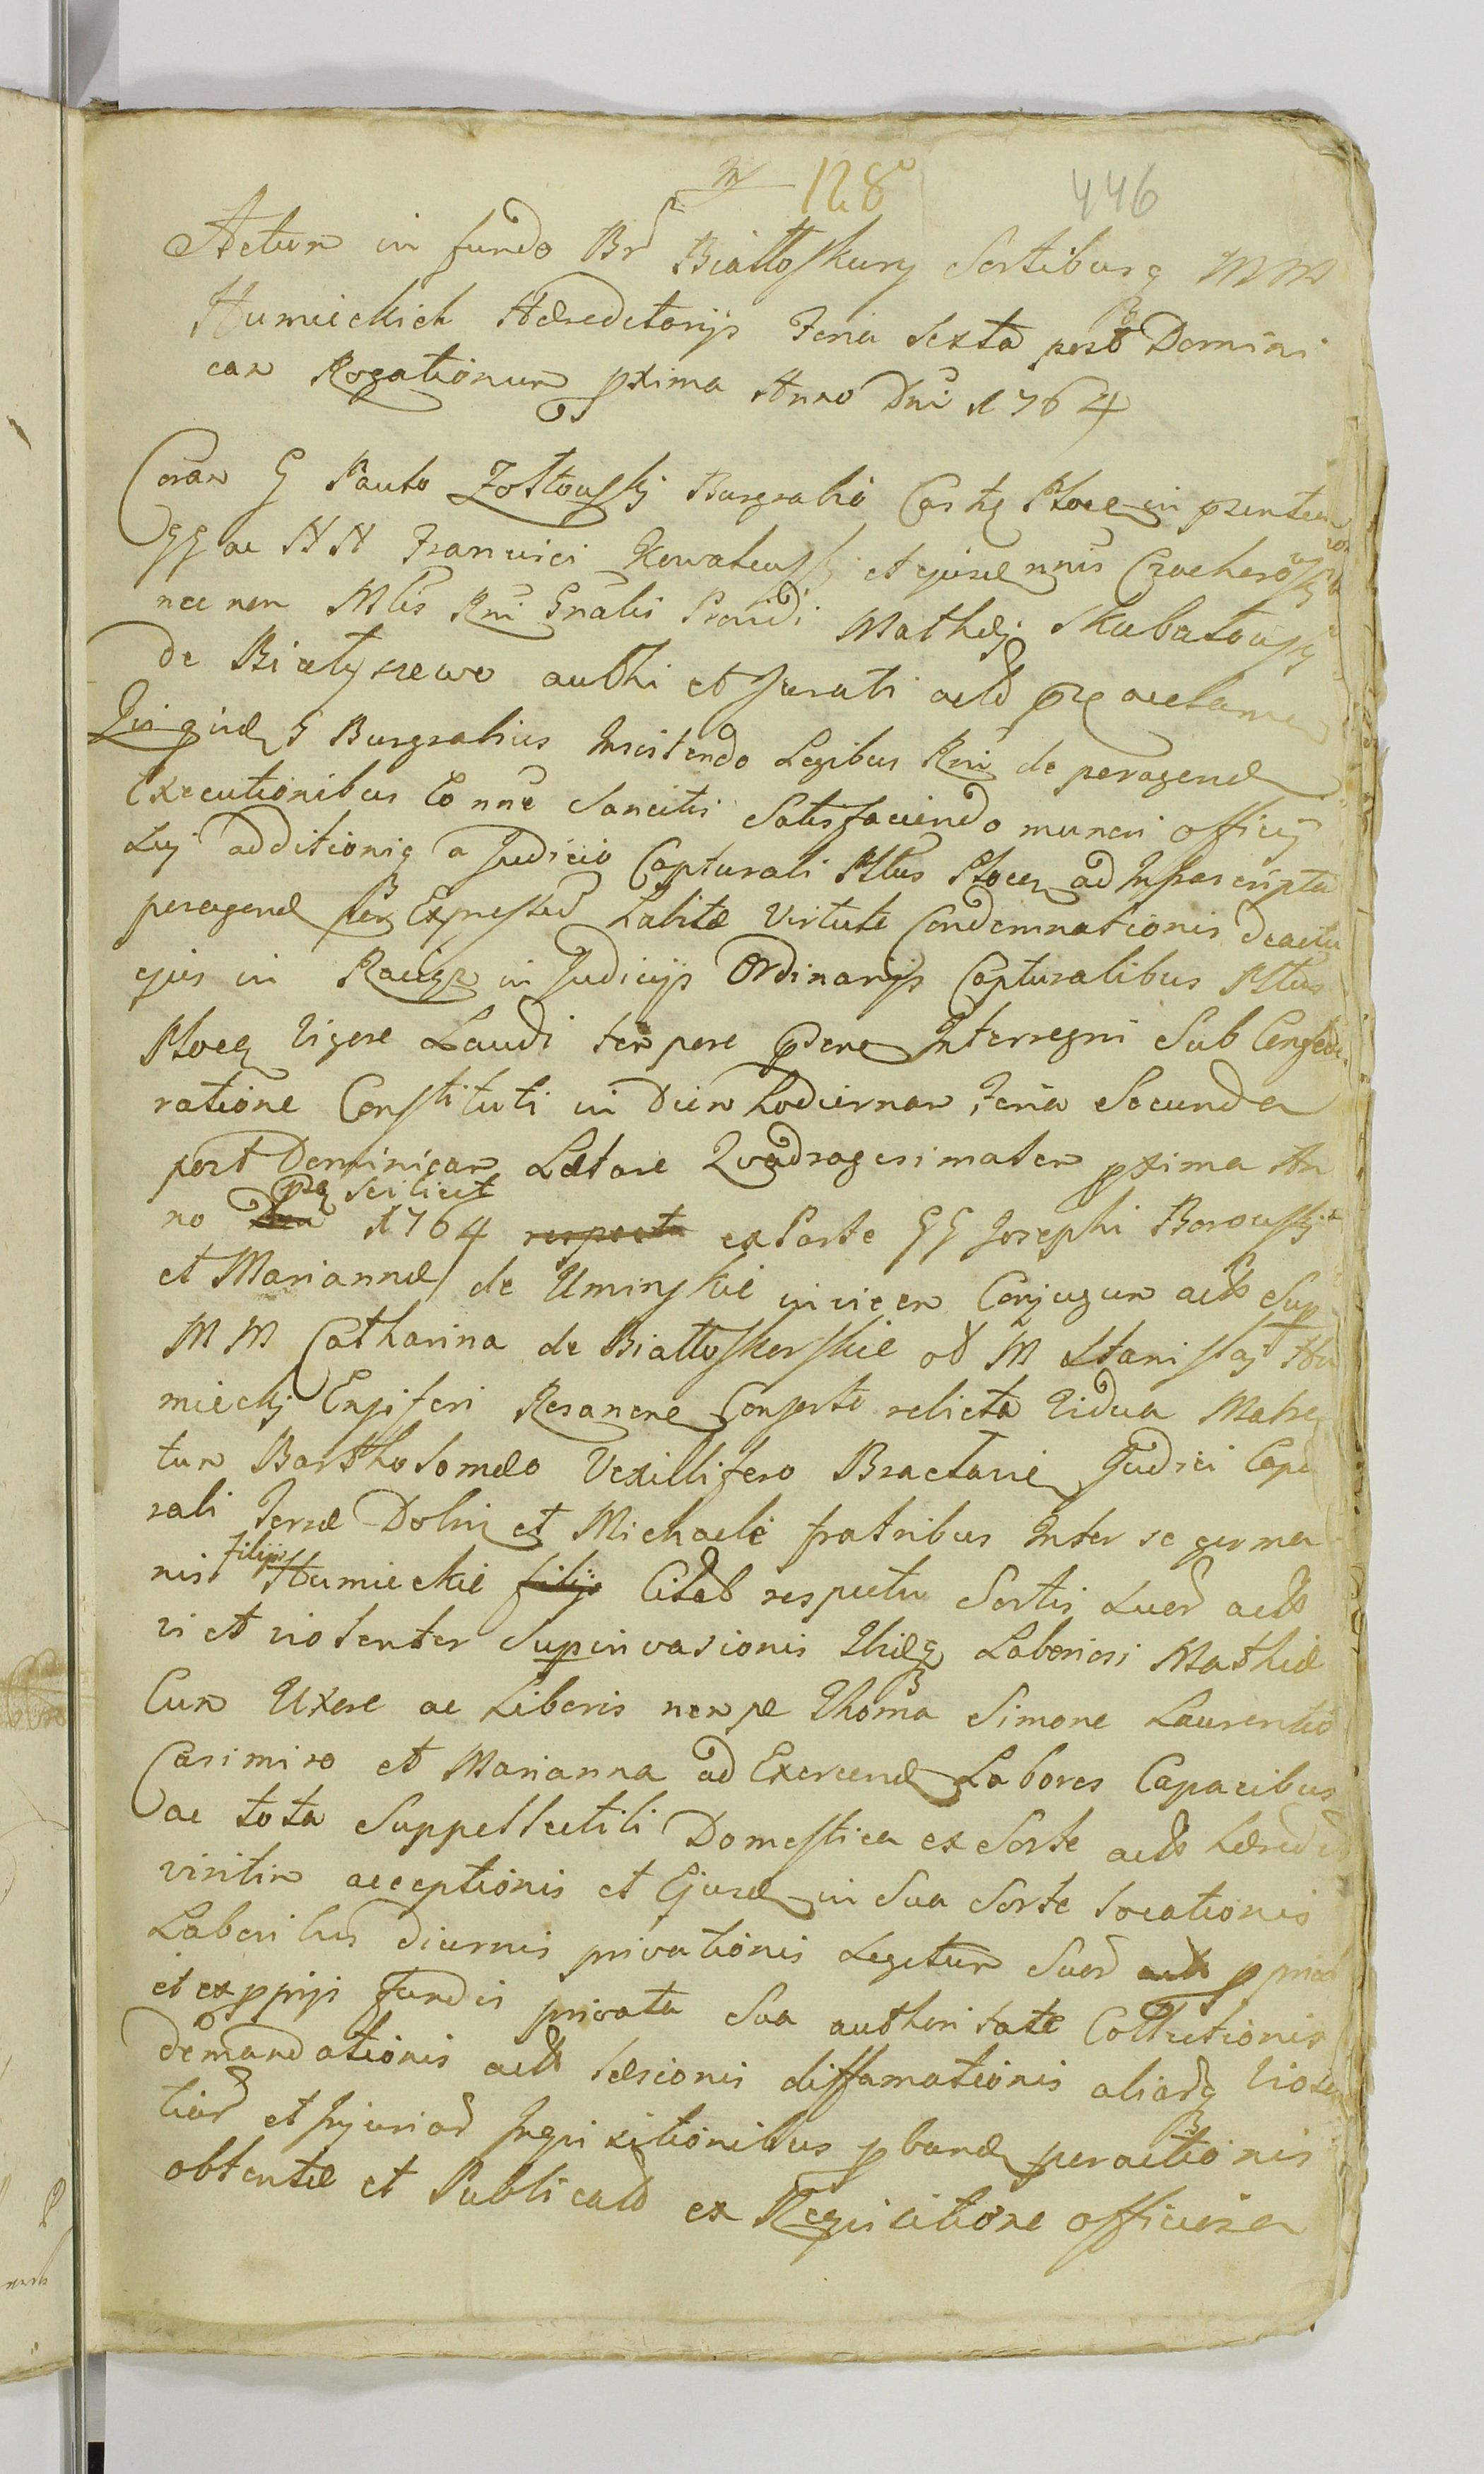 128 446
Actum in fundo Br Biattoskury Sortibusq MM
Humieckich Hæreditarijs Feria Sexta post Domini
cam Rogationum pxima Anno Dni 1764
Coram G Paulo Zottowskj Burgrabio Plocen in psentia
GG ac NN Francisci Kowalewskj et ejusd nnis
nec non Mlis Rni Gnalis Providi Mathæj Skubatowskj
de authi et Jurati actd
G Burgrabius Insistendo Legibus Rni de peragend
Executionibus eo nne Sancitis Satisfaciendo muneri officij
Suj additioniq a Judicio Capturali Pltus Plocen ad Infrascripta
peragend per Expressed habitæ Virtute Condemnationis
ejus in in Judicijs Ordinarijs Capturalibus Pltus
Plocen Vigore Laudi tempore Interregni Sub Confede
ratione Constituti in Diem hodiernam Feria Secunda
post Dominicam Lætare Quadragesimalem pxima An
no scilicet 1764 respectu ex Parte GG Josephi Borowskj
et Mariannæ de Uminskie invicem Conjugum acts Sup
MM Catharina de Biattoskorskie ol M Stanislaj Hu
mieckj Ensiferi Rozanen Consorte relicta Vidua Matre
tum Bartholomæo Vexillifero Judici Captu
rali Terræ Dobrin et Michaele fratribus Inter se germa
nis filijs Humieckie filijs Citat respectu Sortis Suor acts
vi et violenter Supinvasionis Ibidq Laboriosi Mathiæ
Cum Uxore ac Liberis nempe Thoma Simone Laurentio
Casimiro et Marianna ad Exercend Labores Capacibus
ac tota Suppellectili Domestica ex Sorte acts
viritim acceptionis et Ejusd in Sua Sorte locationis
Laboribus diurnis privationis Segetum Suor
et ex ppijs fundis privata Sua authoritate Collectionis
demandationis acts læsionis diffamationis aliarq Violen
tiar et Injuriar Inquisitionibus pband peractionis
obtentæ et Publicat ex Requisitione officiosa